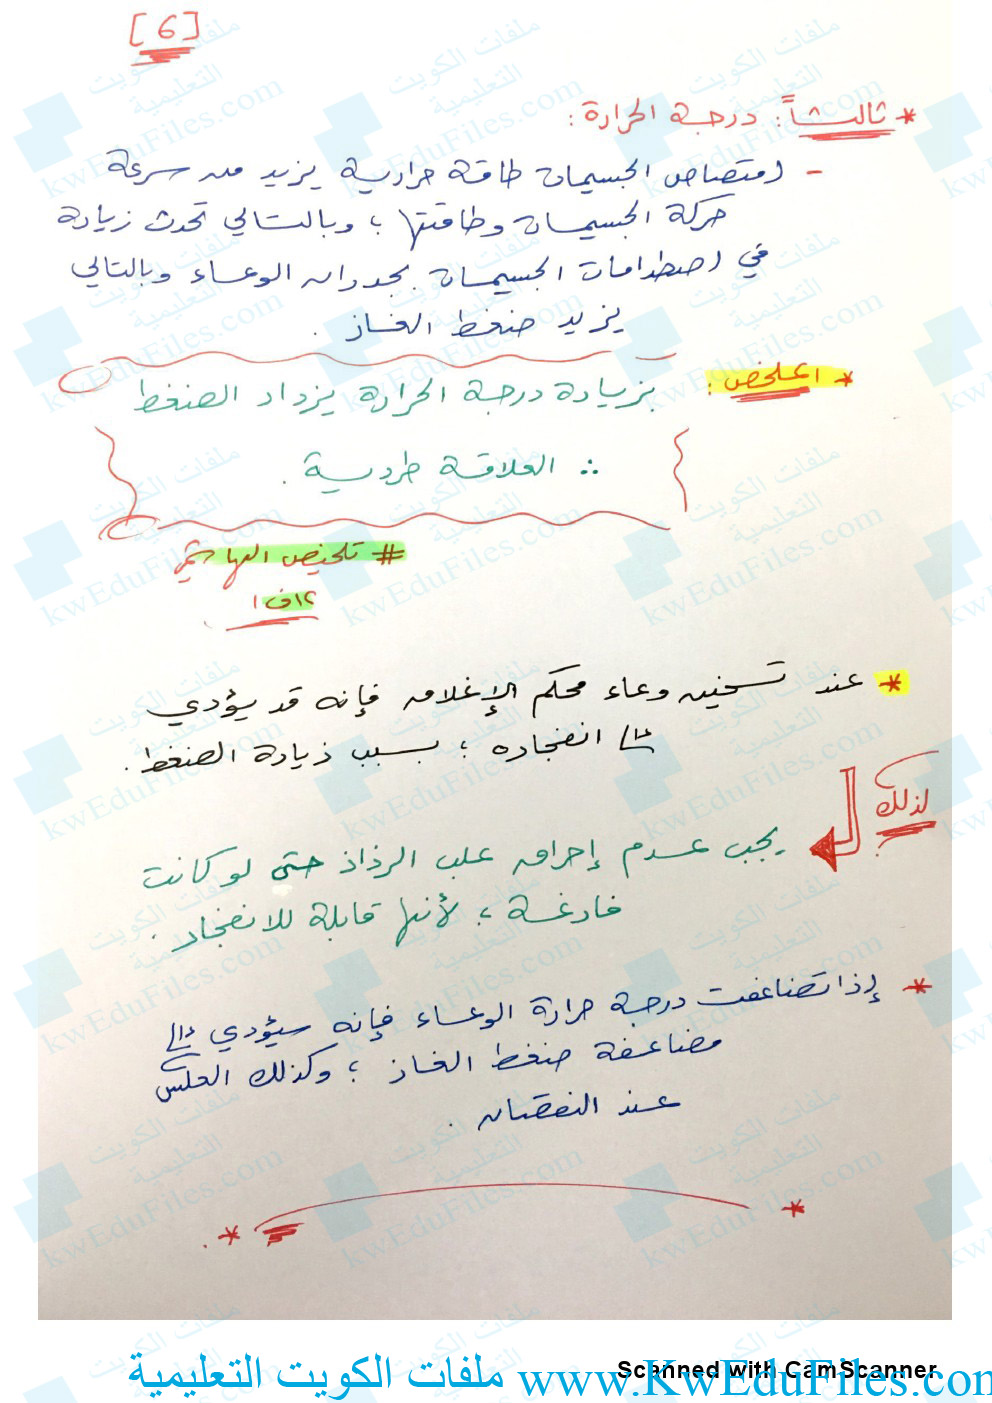 [6]
* ثالثاً: درجة الحرارة:
- امتصاص الجسيمات طاقة حرارية يزيد من سرعة
حركة الجسيمات وطاقتها ؛ وبالتالي تحدث زيادة
في اصطدامات الجسيمات بجدران الوعاء وبالتالي
يزيد ضغط الغاز .
* الملخص : بزيادة درجة الحرارة يزداد الضغط
∴ العلاقة طردية .
# تلخيص الهاشمي
١٢ف١
* عند تسخين وعاء محكم الإغلاق فإنه قد يؤدي
إلى انفجاره ؛ بسبب زيادة الضغط .
لذلك :
يجب عدم إحراق علب الرذاذ حتى لو كانت
فارغة ؛ لأنها قابلة للانفجار .
* إذا تضاعفت درجة حرارة الوعاء فإنه سيؤدي إلى
مضاعفة ضغط الغاز ؛ وكذلك العكس
عند النقصان .
Scanned with CamScanner
www.KwEduFiles.com ملفات الكويت التعليمية